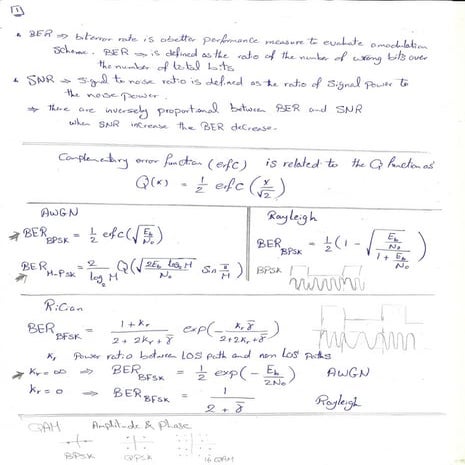 1
BER ⇒ biterror rate is a better performance measure to evaluate a modulation
Scheme. BER ⇒ is defined as the ratio of the number of wrong bits over
the number of total bits
SNR ⇒ Signal to noise ratio is defined as the ratio of Signal Power to
the noise power.
⇒ there are inversely proportional between BER and SNR
when SNR increase the BER decrease.
Complementary error function (erfc) is related to the Q function as
Q(x) = 1/2 erfc (x/√2)
AWGN
BER BPSK = 1/2 erfc(√(Eb/No))
BER M-PSK = 2/log2 M Q(√(2Eb log2 M/No) Sin π/M)
Rayleigh
BER BPSK = 1/2 (1 - √((Eb/No)/(1 + Eb/No)))
BPSK
Rician
BER BFSK = (1 + kr)/(2 + 2kr + γ̄) exp(- kr γ̄/(2+2kr+γ̄))
kr Power ratio between LOS path and non LOS paths
kr = ∞ ⇒ BER BFSK = 1/2 exp(- Eb/2No) AWGN
kr = 0 ⇒ BER BFSK = 1/(2 + γ̄) Rayleigh
QAM Amplitude & Phase
BPSK QPSK 16 QAM